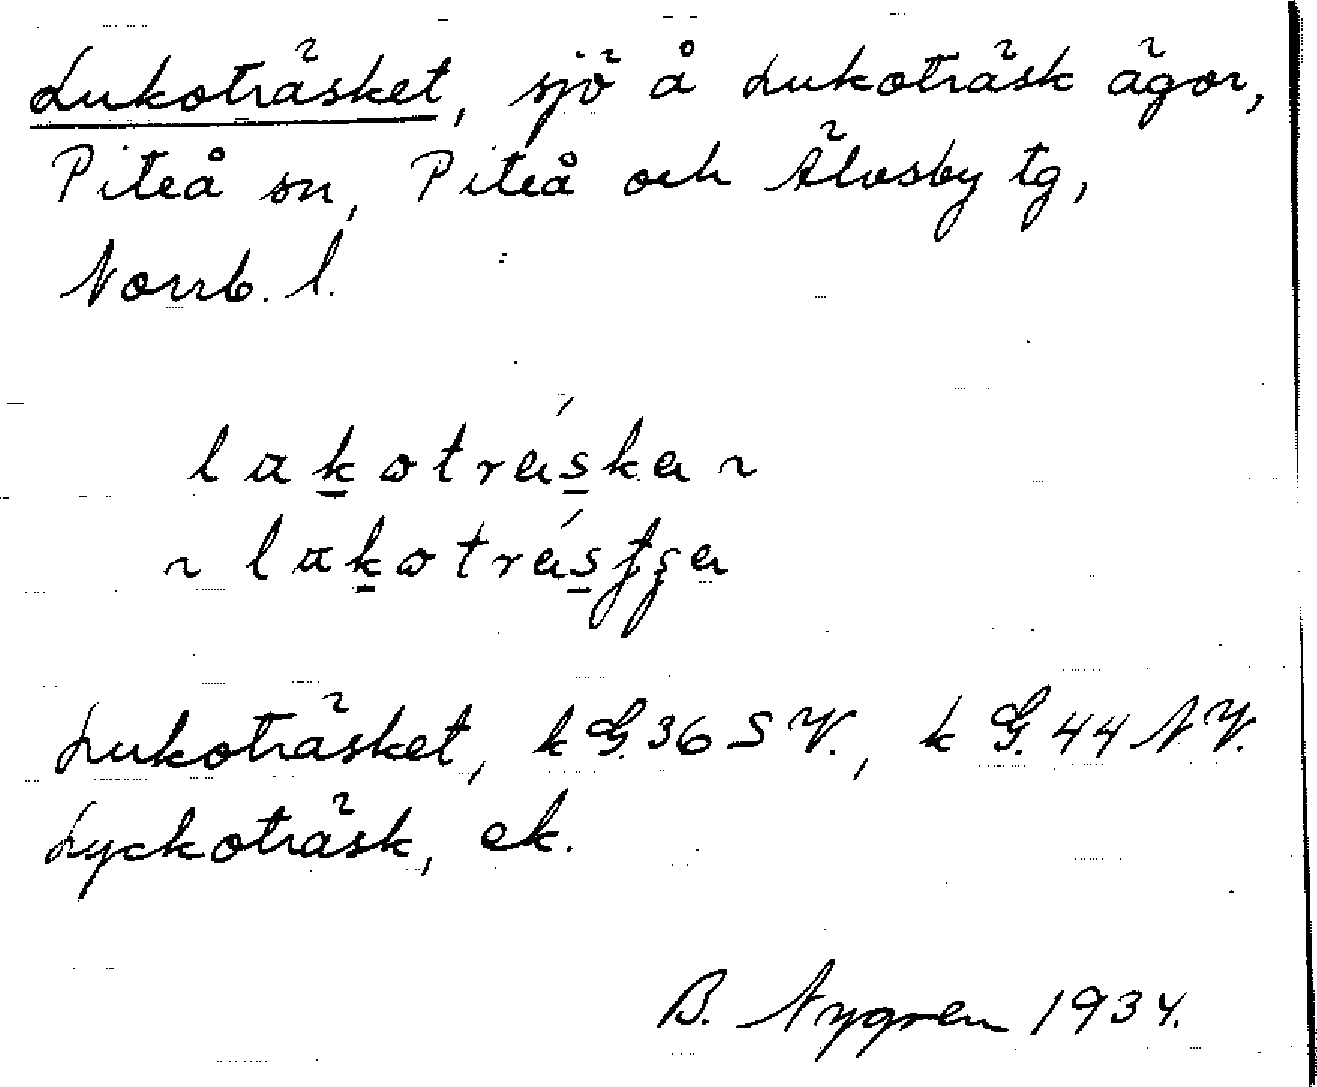 Lukoträsket, sjö å Lukoträsk ägor,
Piteå sn, Piteå och Älvsby tg,
Norrb. l.
Lukoträsket, k G. 36 S V., k G. 44 N V.
Lyckoträsk, ek.
B. Nygren 1934.